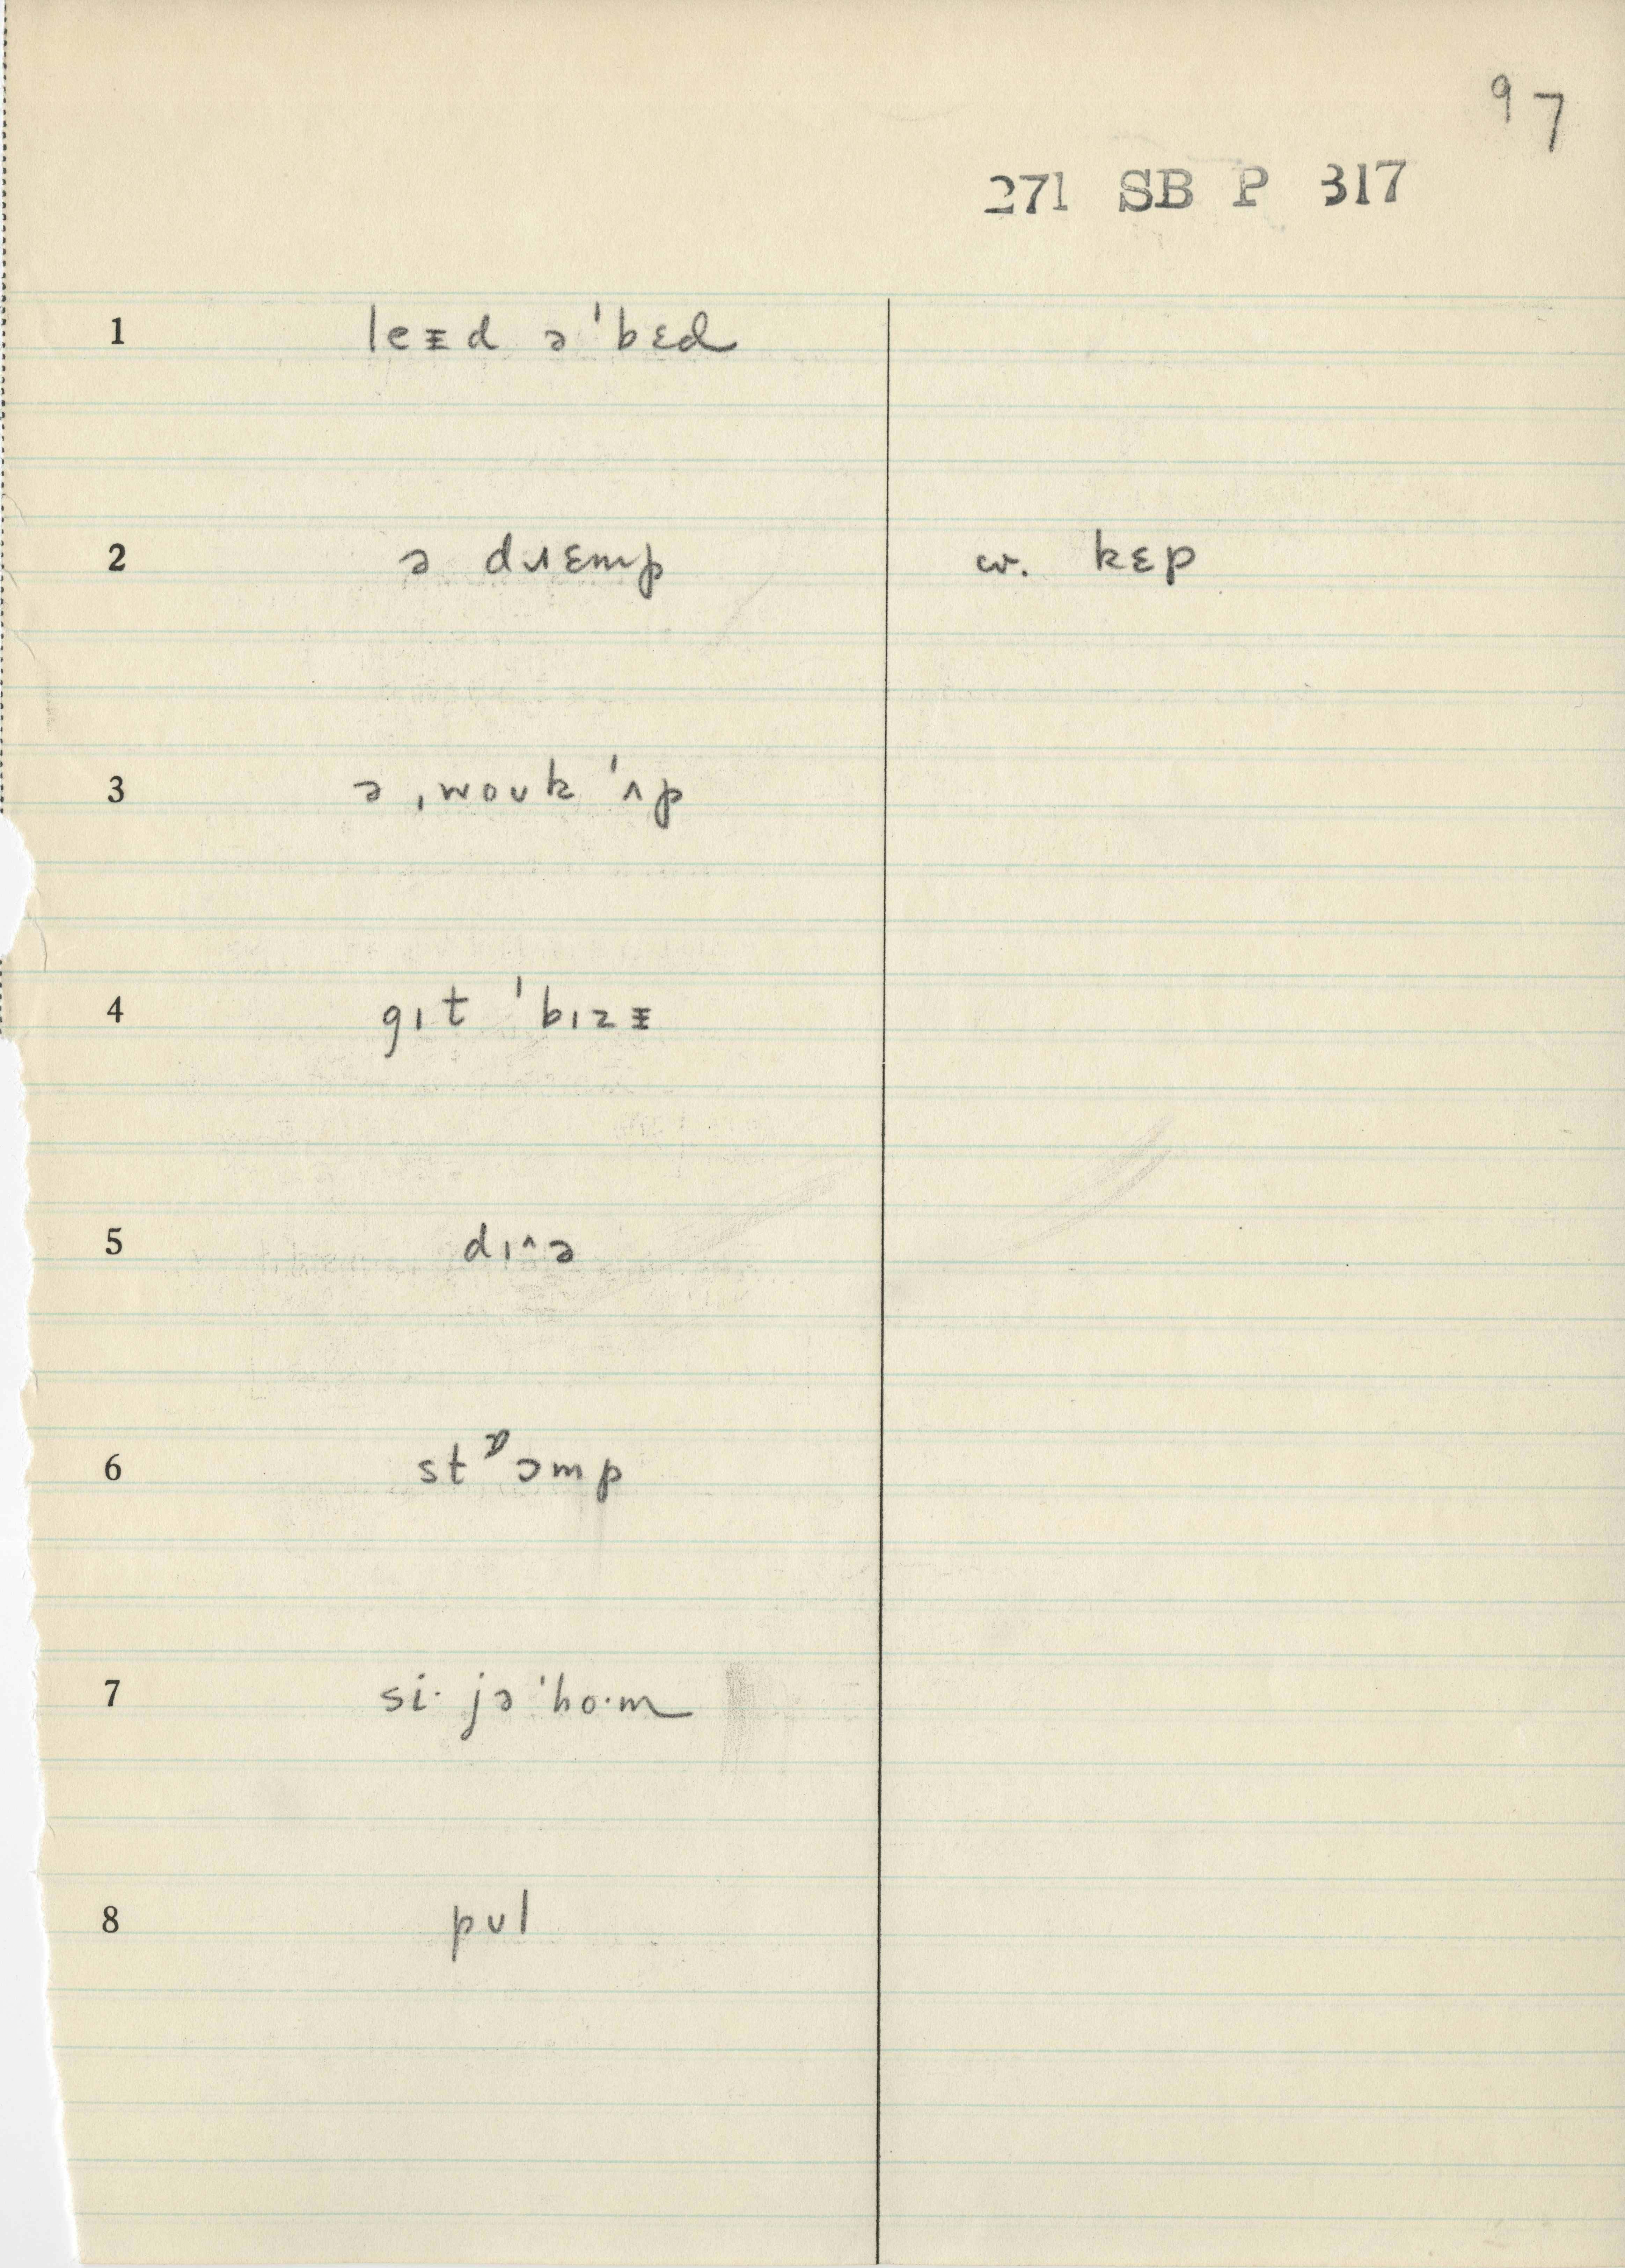 97
271 SB P 317
1 leᵻd ə ˈbɛd
2 ə dɹɛmp cv. kɛp
3 ə ˌwoʊk ˈʌp
4 gɪt ˈbɪzᵻ
5 dɪ^ə
6 stᶛɔmp
7 si· jə ˈho·m
8 pʊl